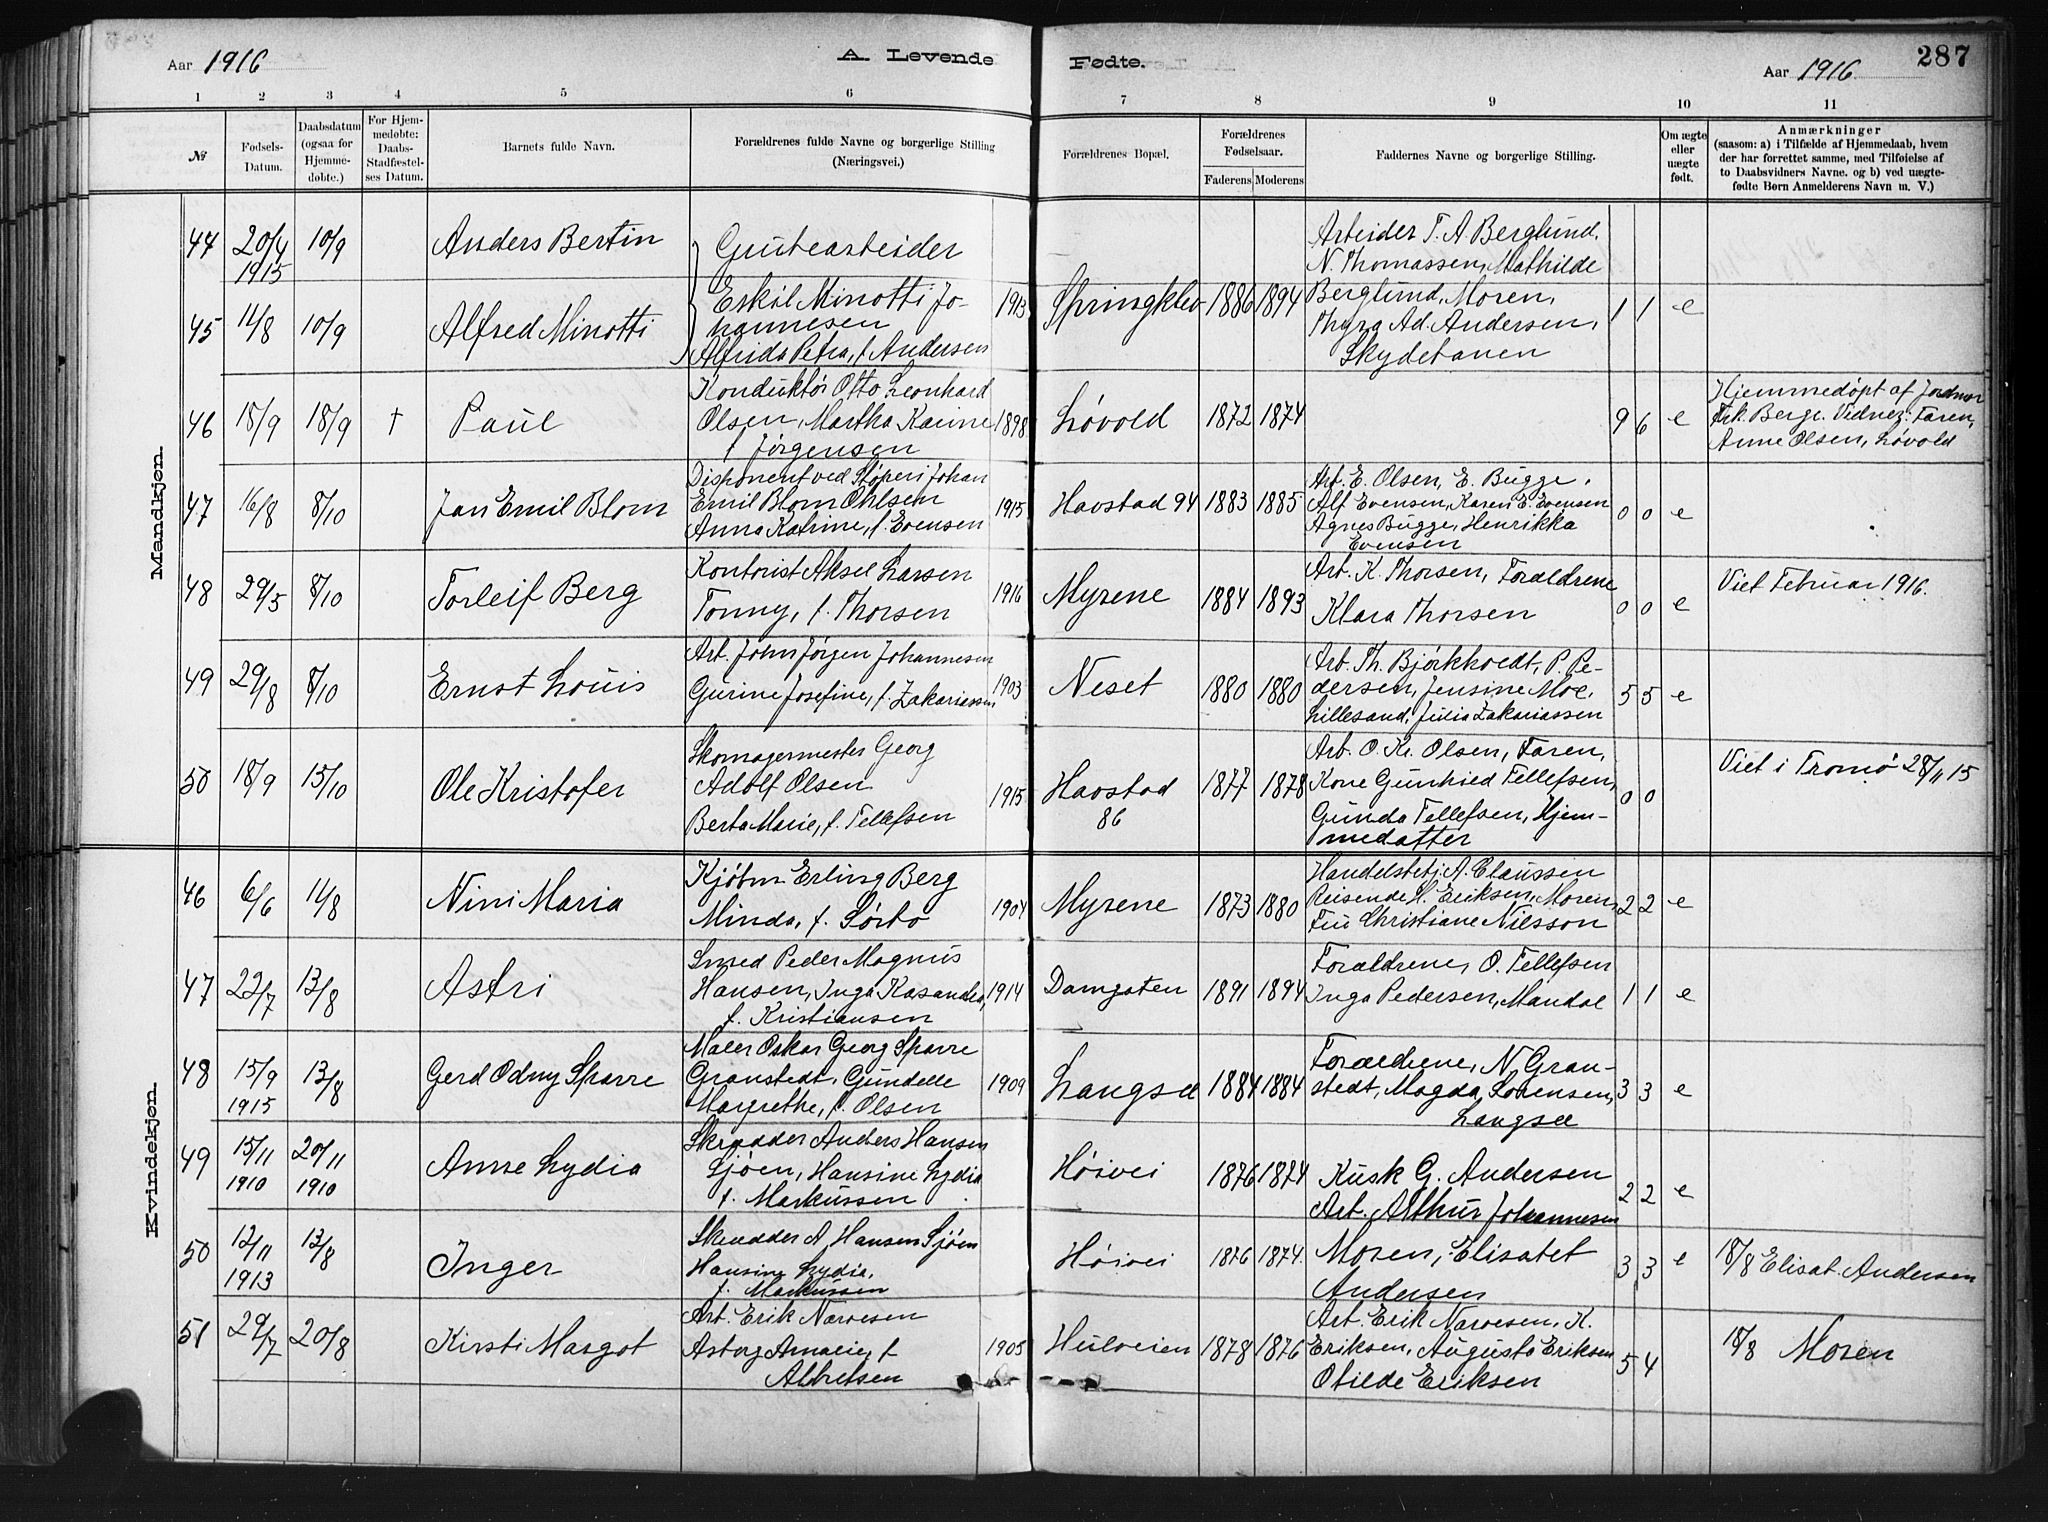 Aar 1916
A. Levende Fødte.
Aar 1916
287
1 2 3 4 5 6 7 8 9 10 11
№
Fødsels-Datum.
Daabsdatum (ogsaa for Hjemmedøbte.)
For Hjemmedøbte: Daabs-Stadfæstelses Datum.
Barnets fulde Navn.
Forældrenes fulde Navne og borgerlige Stilling (Næringsvei.)
Forældrenes Bopæl.
Forældrenes Fødselsaar.
Faderens Moderens
Faddernes Navne og borgerlige Stilling.
Om ægte eller uægte født.
Anmærkninger
(saasom: a) i Tilfælde af Hjemmedaab, hvem
der har forrettet samme, med Tilføielse af
to Daabsvidners Navne. og b) ved uægte-
fødte Børn Anmelderens Navn m. V.)
Mandkjøn.
44 20/4 1915 10/9 Anders Bertin
Grubearbeider
Arbeider T. A. Berglund,
N. Thomassen, Mathilde
45 11/8 10/9 Alfred Minotti
Eskil Minotti Jo-
hannesen
Alfrida Petra, f. Andersen
1913 Springklev 1886 1894
Berglund, Moren,
Thyra Ad. Andersen,
Skydebanen
1 1 e
46 18/9 18/9 † Paul
Konduktør Otto Leonhard
Olsen, Martha Karine
f Jørgensen
1898 Løvold 1872 1874
9 6 e
Hjemmedøpt af Jordmor
Frk. Berge. Vidner: Faren,
Anne Olsen, Løvold
47 16/8 8/10 Jan Emil Blom
Disponent ved Støperi Johan
Emil Blom Ohlsen
Anna Katrine, f. Evensen
1915 Havstad 94 1883 1885
Art. E. Olsen, E. Bugge,
Alf Evensen, Karen E. Evensen
Agnes Bugge, Henrikka
Evensen
0 0 e
48 29/5 8/10 Torleif Berg
Kontorist Aksel Larsen
Tonny, f. Thorsen
1916 Myrene 1884 1893
Arb. K. Thorsen, Forældrene
Klara Thorsen
0 0 e
Viet Februar 1916.
49 29/8 8/10 Ernst Louis
Arb. John Jørgen Johannesen
Gurine Josefine, f. Zakariassen
1903 Neset 1880 1880
Arb. Th. Bjørkhoedt, P. Pe-
dersen, Jensine Moe,
Lillesand, Julia Zakariassen
5 5 e
50 18/9 15/10 Ole Kristofer
Skomagermester Georg
Adolf Olsen
Berta Marie, f. Tellefsen
1915 Havstad
86
1877 1878
Arb. O. Kr. Olsen, Faren,
Kone Gunhild Tellefsen,
Gunda Tellefsen, Hjem-
medatter
0 0
Viet i Tromø 28/11 15
Kvindekjøn.
46 6/6 11/8 Nini Maria
Kjøbm. Erling Berg
Minda, f. Sørbo
1904 Myrene 1873 1880
Handelsbetj. A. Claussen
Reisende H. Eriksen, Moren,
Fru Christiane Nilsson
2 2 e
47 23/7 13/8 Astri
Smed Peder Magnus
Hansen, Inga Kasandra,
f. Kristiansen
1914 Damgaten 1891 1894
Forældrene, O. Tellefsen
Inga Pedersen, Mandal
1 1 e
48 15/9 1915 13/8 Gerd Odny Sparre
Maler Oskar Georg Sparre
Granstedt, Gundelle
Margrethe, f. Olsen
1909 Langsæ 1884 1884
Forældrene, N. Gran-
stedt, Magda Sørensen,
Langsæ
3 3 e
49 15/11 1910 20/11 1910 Anne Lydia
Skrædder Anders Hansen
Sjøen, Hansine Lydia
f. Markussen
Høivei 1876 1874
Kusk G. Andersen
Arb. Arthur Johannesen
2 2 e
50 12/11 1913 13/8 Inger
Skrædder A. Hansen Sjøen
Hansine Lydia,
f. Markussen
Høivei 1876 1874
Moren, Elisabet
Andersen
3 3 e
18/8 Elisab. Andersen
51 29/7 20/8 Kirsti Margot
Arb. Erik Narvesen
Asborg Amalie, f
Albretsen
1905 Hulveien 1878 1876
Arb. Erik Narvesen, K.
Eriksen, Augusta Eriksen
Otilde Eriksen
5 4
18/8 Moren